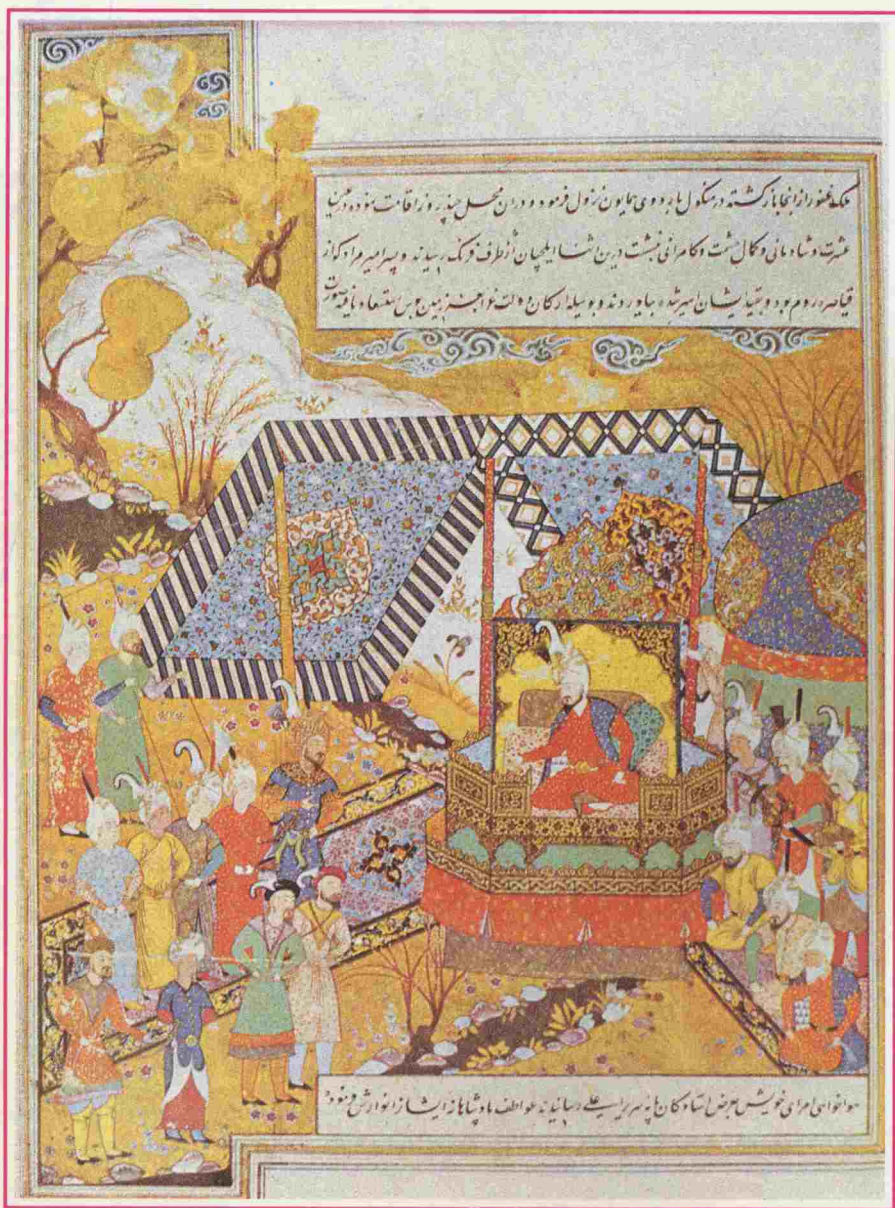 ملک غفور از انجا بازگشته در منکول باردوی همایون نزول فرمود و دران محل چند روز اقامت نموده در عین
عشرت و شادمانی و کمال حشمت و کامرانی نشست درین اثنا ایلچیان از طرف فرنگ رسیدند و پسر امیر مراد که از
قیاصره روم بود و بقید ایشان اسیر شده بیاوردند و بوسیله ارکان دولت زمین بوس استسعاد یافته صورت
امرای خویش بعرض استادکان پایه سریر اعلی رسانیدند عواطف پادشاهانه ایشانرا نوازش فرمود